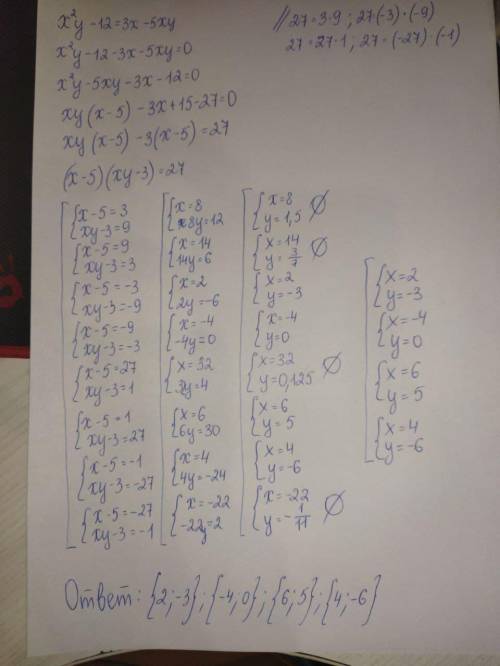 x²y-12=3x-5xy
x²y-12-3x-5xy=0
x²y-5xy-3x-12=0
xy(x-5)-3x+15-27=0
xy(x-5)-3(x-5)=27
(x-5)(xy-3)=27
//27=3·9; 27·(-3)·(-9)
27=27·1; 27=(-27)·(-1)
x-5=3
xy-3=9
x-5=9
xy-3=3
x-5=-3
xy-3=-9
x-5=-9
xy-3=-3
x-5=27
xy-3=1
x-5=1
xy-3=27
x-5=-1
xy-3=-27
x-5=-27
xy-3=-1
x=8
8y=12
x=14
14y=6
x=2
2y=-6
x=-4
-4y=0
x=32
32y=4
x=6
6y=30
x=4
4y=-24
x=-22
-22y=2
x=8
y=1,5 ∅
x=14
y=3/7 ∅
x=2
y=-3
x=-4
y=0
x=32
y=0,125 ∅
x=6
y=5
x=4
y=-6
x=-22
y=-1/11 ∅
x=2
y=-3
x=-4
y=0
x=6
y=5
x=4
y=-6
Ответ: {2;-3}; {-4;0}; {6;5}; {4;-6}